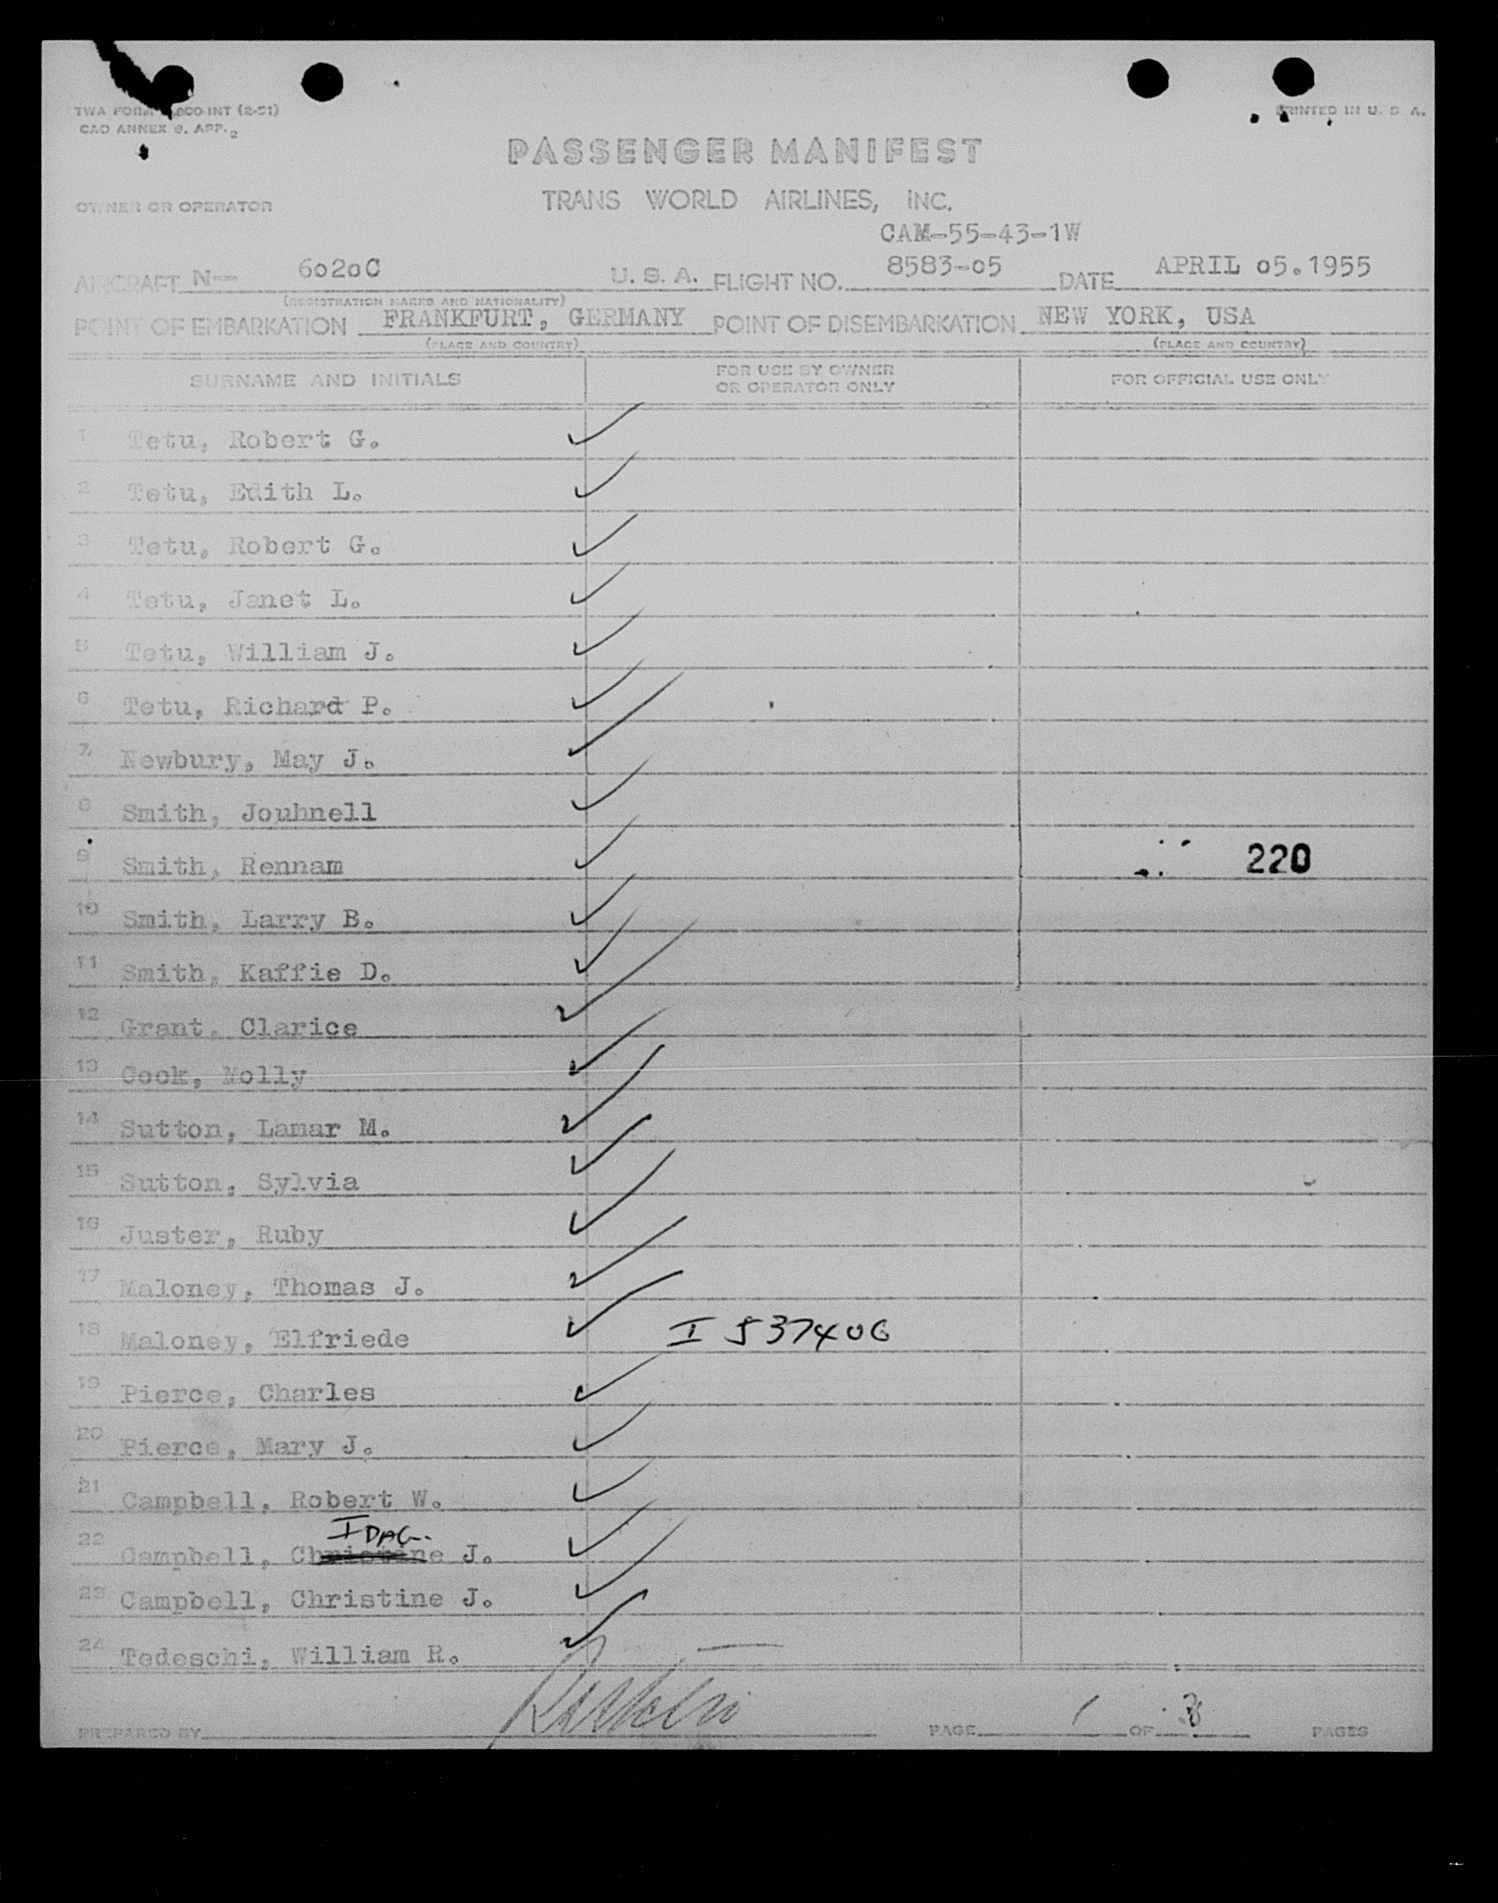 TWA FORM -INT (2-51)
PRINTED IN U. S. A.
CAO ANNEX 9. APP. 2
PASSENGER MANIFEST
OWNER OR OPERATOR
TRANS WORLD AIRLINES, INC.
CAM-55-43-1W
AIRCRAFT N-- 6020C U. S. A. FLIGHT NO. 8583-05 DATE APRIL 05.1955
(REGISTRATION MARKS AND NATIONALITY)
POINT OF EMBARKATION FRANKFURT, GERMANY POINT OF DISEMBARKATION NEW YORK, USA
(PLACE AND COUNTRY) (PLACE AND COUNTRY)
SURNAME AND INITIALS FOR USE BY OWNER OR OPERATOR ONLY FOR OFFICIAL USE ONLY
1 Tetu, Robert G.
2 Tetu, Edith L.
3 Tetu, Robert G.
4 Tetu, Janet L.
5 Tetu, William J.
6 Tetu, Richard P.
7 Newbury, May J.
8 Smith, Jouhnell
9 Smith, Rennam 220
10 Smith, Larry B.
11 Smith, Kaffie D.
12 Grant, Clarice
13 Cook, Molly
14 Sutton, Lamar M.
15 Sutton, Sylvia
16 Juster, Ruby
17 Maloney, Thomas J.
18 Maloney, Elfriede I 537406
19 Pierce, Charles
20 Pierce, Mary J.
21 Campbell, Robert W.
22 Campbell, Christine J.
23 Campbell, Christine J.
24 Tedeschi, William R.
PREPARED BY PAGE 1 OF 3 PAGES